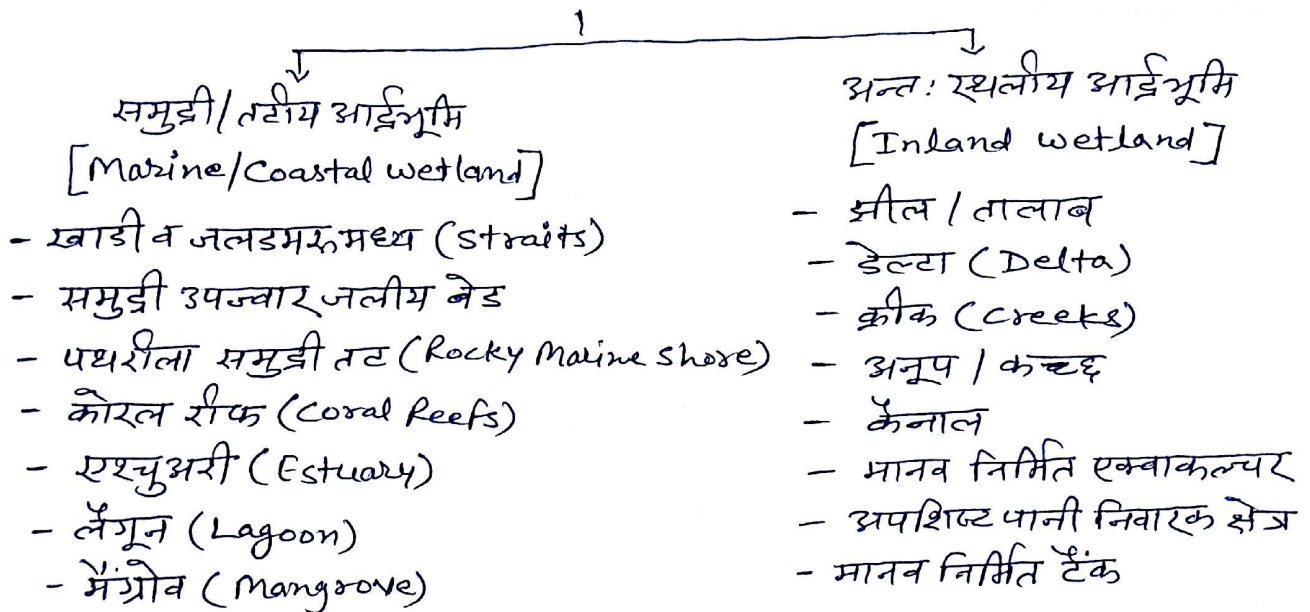 समुद्री/तटीय आर्द्रभूमि
[Marine/Coastal wetland]
- खाडी व जलडमरुमध्य (Straits)
- समुद्री उपज्वार जलीय बेड
- पथरीला समुद्री तट (Rocky Marine Shore)
- कोरल रीफ (Coral Reefs)
- एश्चुअरी (Estuary)
- लैगून (Lagoon)
- मैंग्रोव (Mangrove)
अन्त: स्थलीय आर्द्रभूमि
[Inland wetland]
- झील / तालाब
- डेल्टा (Delta)
- क्रीक (Creeks)
- अनूप / कच्छ
- कैनाल
- मानव निर्मित एक्वाकल्चर
- अपशिष्ट पानी निवारक क्षेत्र
- मानव निर्मित टैंक